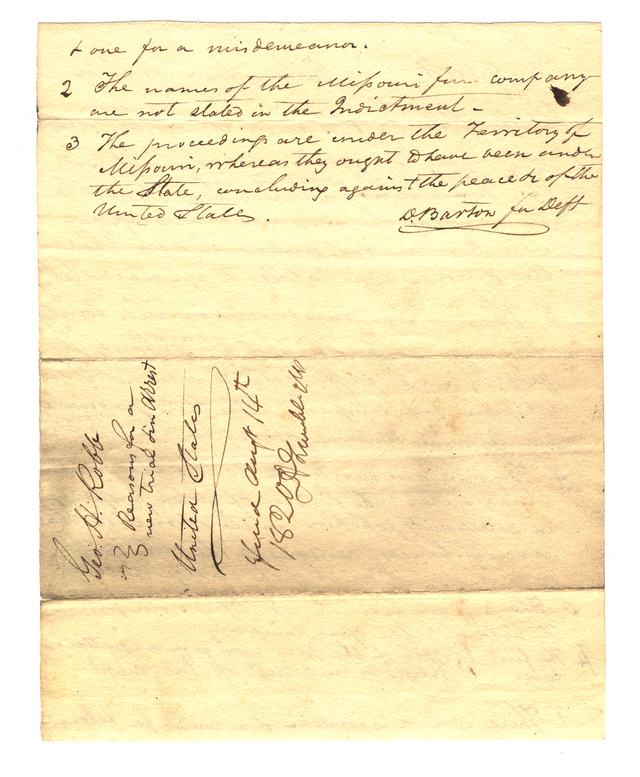 & one for a misdemeanor.
2 The names of the Missouri fur company
are not stated in the Indictment -
3 The proceedings are under the Territory of
Missouri, whereas they ought to have been under
the State, concluding against the peace &c of the
United States.
D Barton for Deft
Geo. H. Robb
vs } Reasons for a
new trial & in Arrest
United States
filed Augt 14th
1820